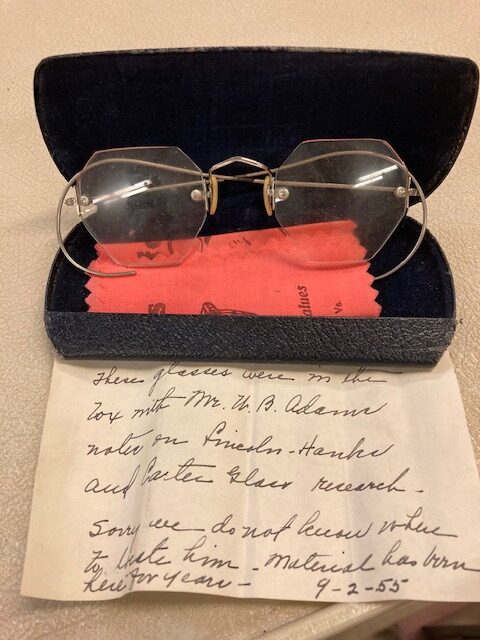 alues
Va.
These glasses were in the
box with Mr. W. B. Adams
notes on Lincoln-Hanks
and Carter Glass research -
Sorry we do not know where
to locate him - Material has been
here for years - 9-2-55